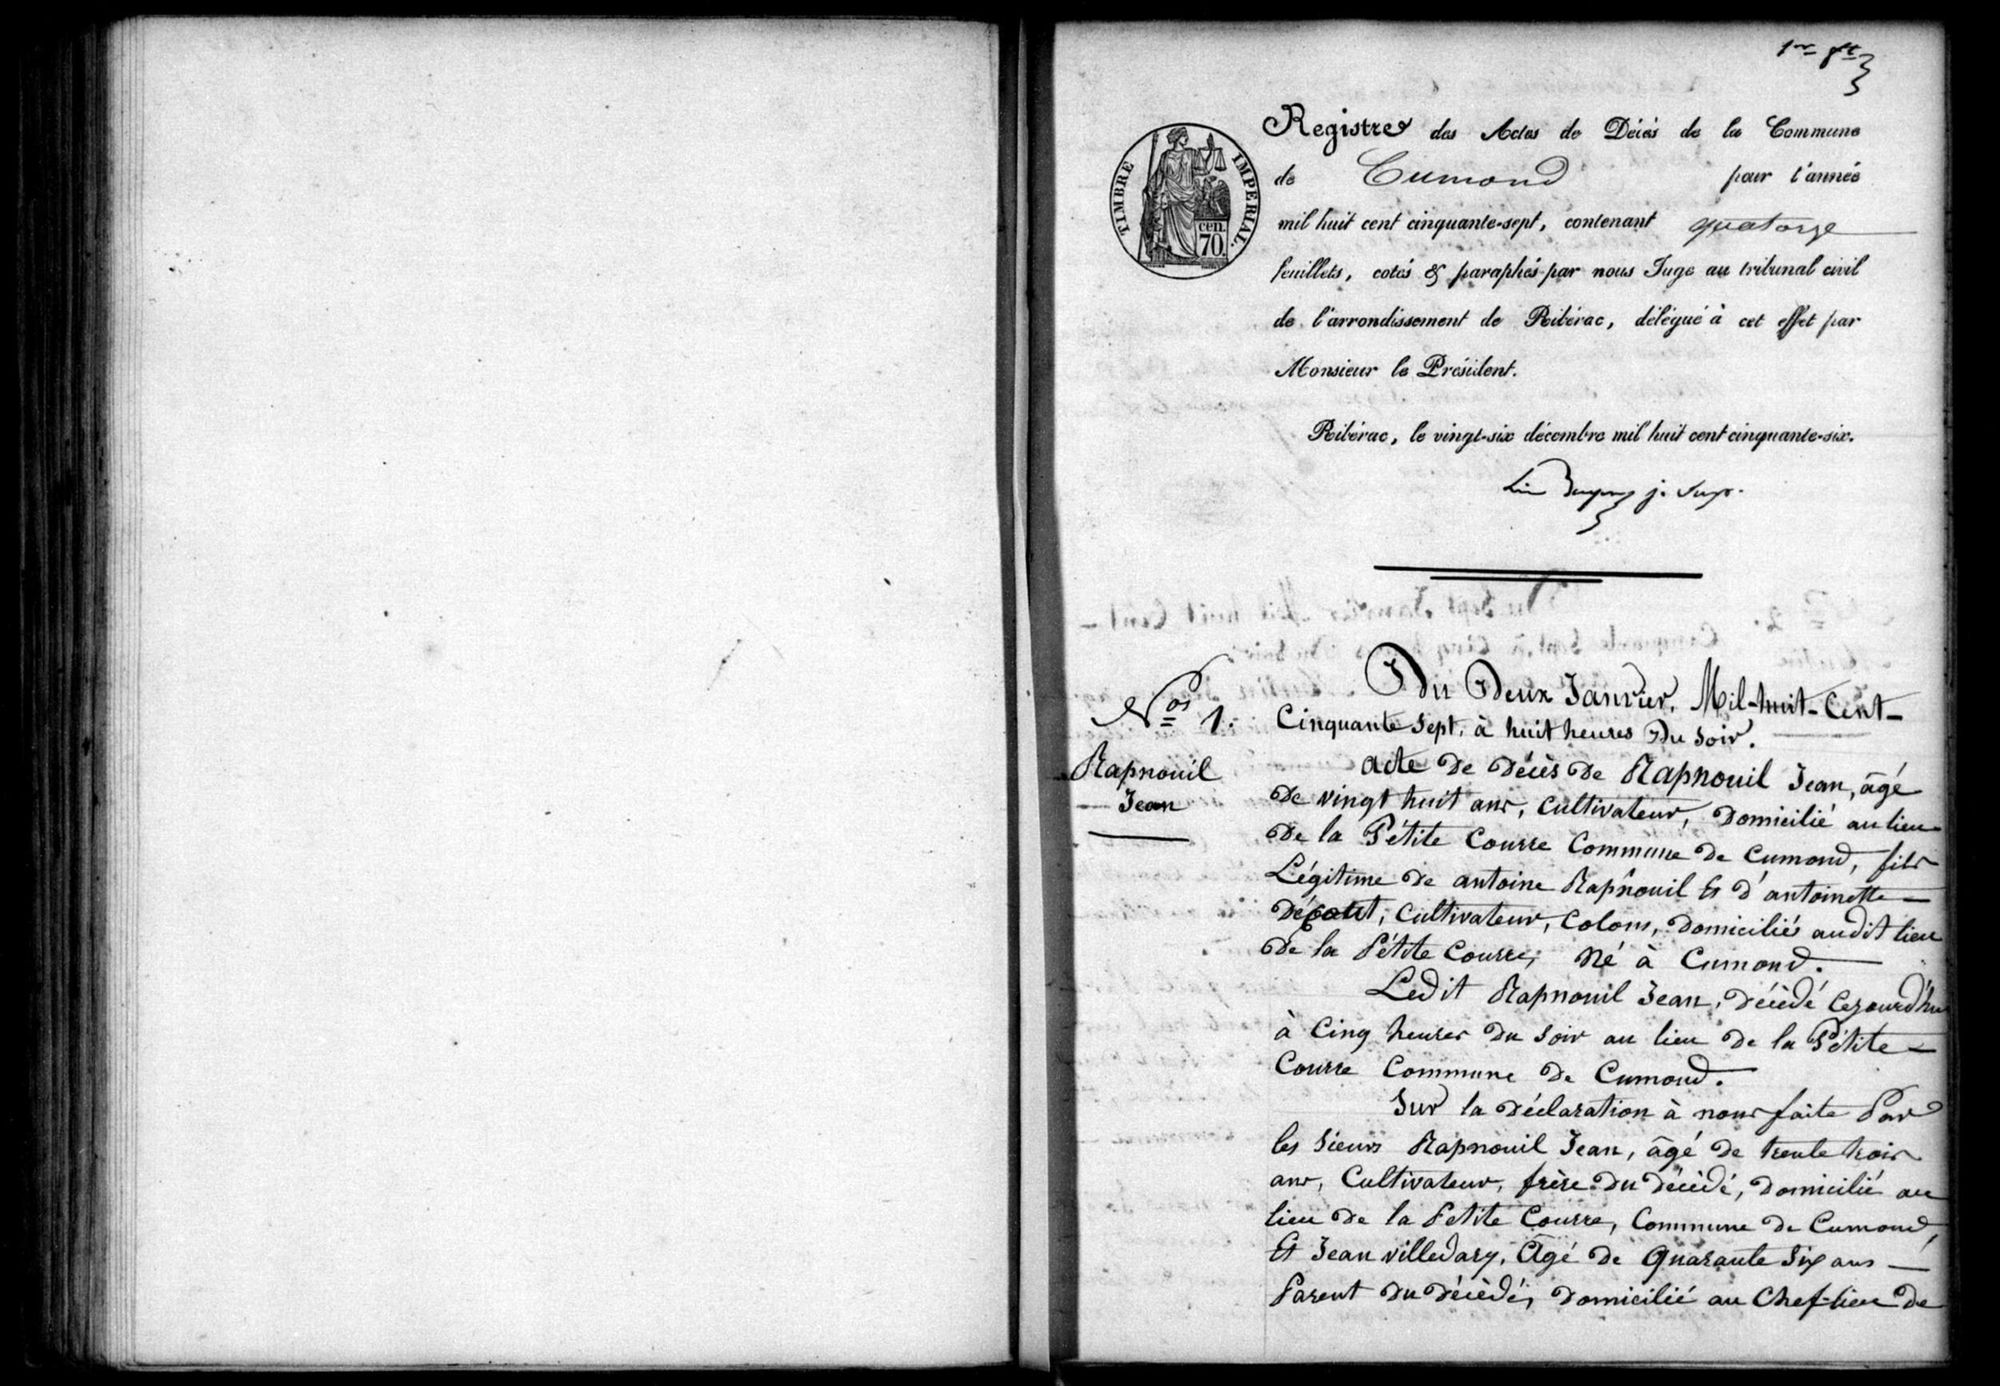 1er ft
Registre des Actes de Décès de la Commune
de Cumond pour l'année
mil huit cent cinquante-sept, contenant quatorze
feuillets, cotés & paraphés par nous Juge au tribunal civil
de l'arrondissement de Ribérac, délégué à cet effet par
Monsieur le Président.
Ribérac, le vingt-six décembre mil huit cent cinquante-six.
j. Sup.
TIMBRE IMPERIAL.
cen.
70.
Nos 1.
Rapnouil
Jean
Du Deux Janvier, Mil-huit-Cent-
Cinquante sept, à huit heures Du Soir.
acte De Décès De Rapnouil Jean, âgé
De vingt huit ans, Cultivateur, Domicilié au lieu
De la Pétite Courre Commune De Cumond, fils
Légitime De antoine Rapnouil Et D'antoinette
Cultivateur, Colons, Domiciliés audit lieu
De la Pétite Courre, Né à Cumond.
Ledit Rapnouil Jean, Décèdé Cejourd'hu
à Cinq heures Du Soir au lieu De la Pétite
Courre Commune De Cumond.
Sur la Déclaration à nous faite Par
les Sieurs Rapnouil Jean, âgé De trente trois
ans, Cultivateur, frère Du Décèdé, Domicilié au
lieu De la Petite Courre, Commune De Cumond,
Et Jean Villedary, Agé De Quarante Six ans
Parent Du Décèdé, Domicilié au Chef-lieu De